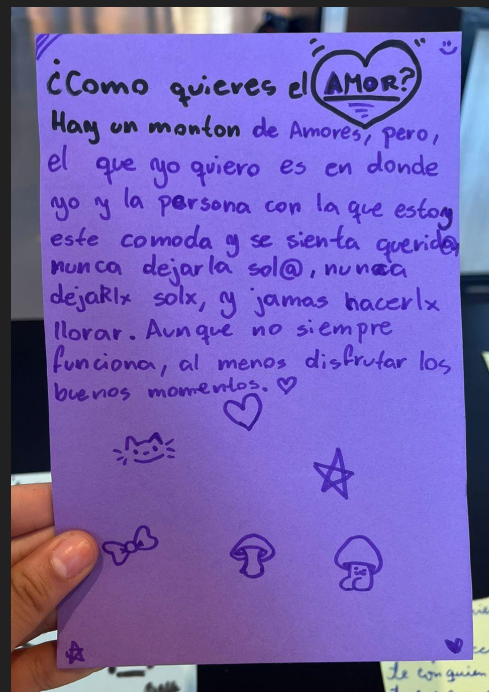 ¿Como quieres el AMOR?
Hay un monton de Amores, pero,
el que yo quiero es en donde
yo y la persona con la que estoy
este comoda y se sienta querida,
nunca dejarla sol@, nunca
dejaRlx solx, y jamas hacerlx
llorar. Aunque no siempre
funciona, al menos disfrutar los
buenos momentos. ♡
te con quien